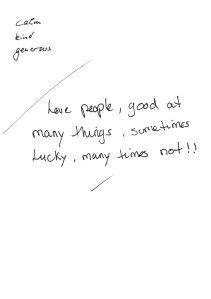 calm
kind
generous
Love people, good at
many things, sometimes
Lucky, many times not!!